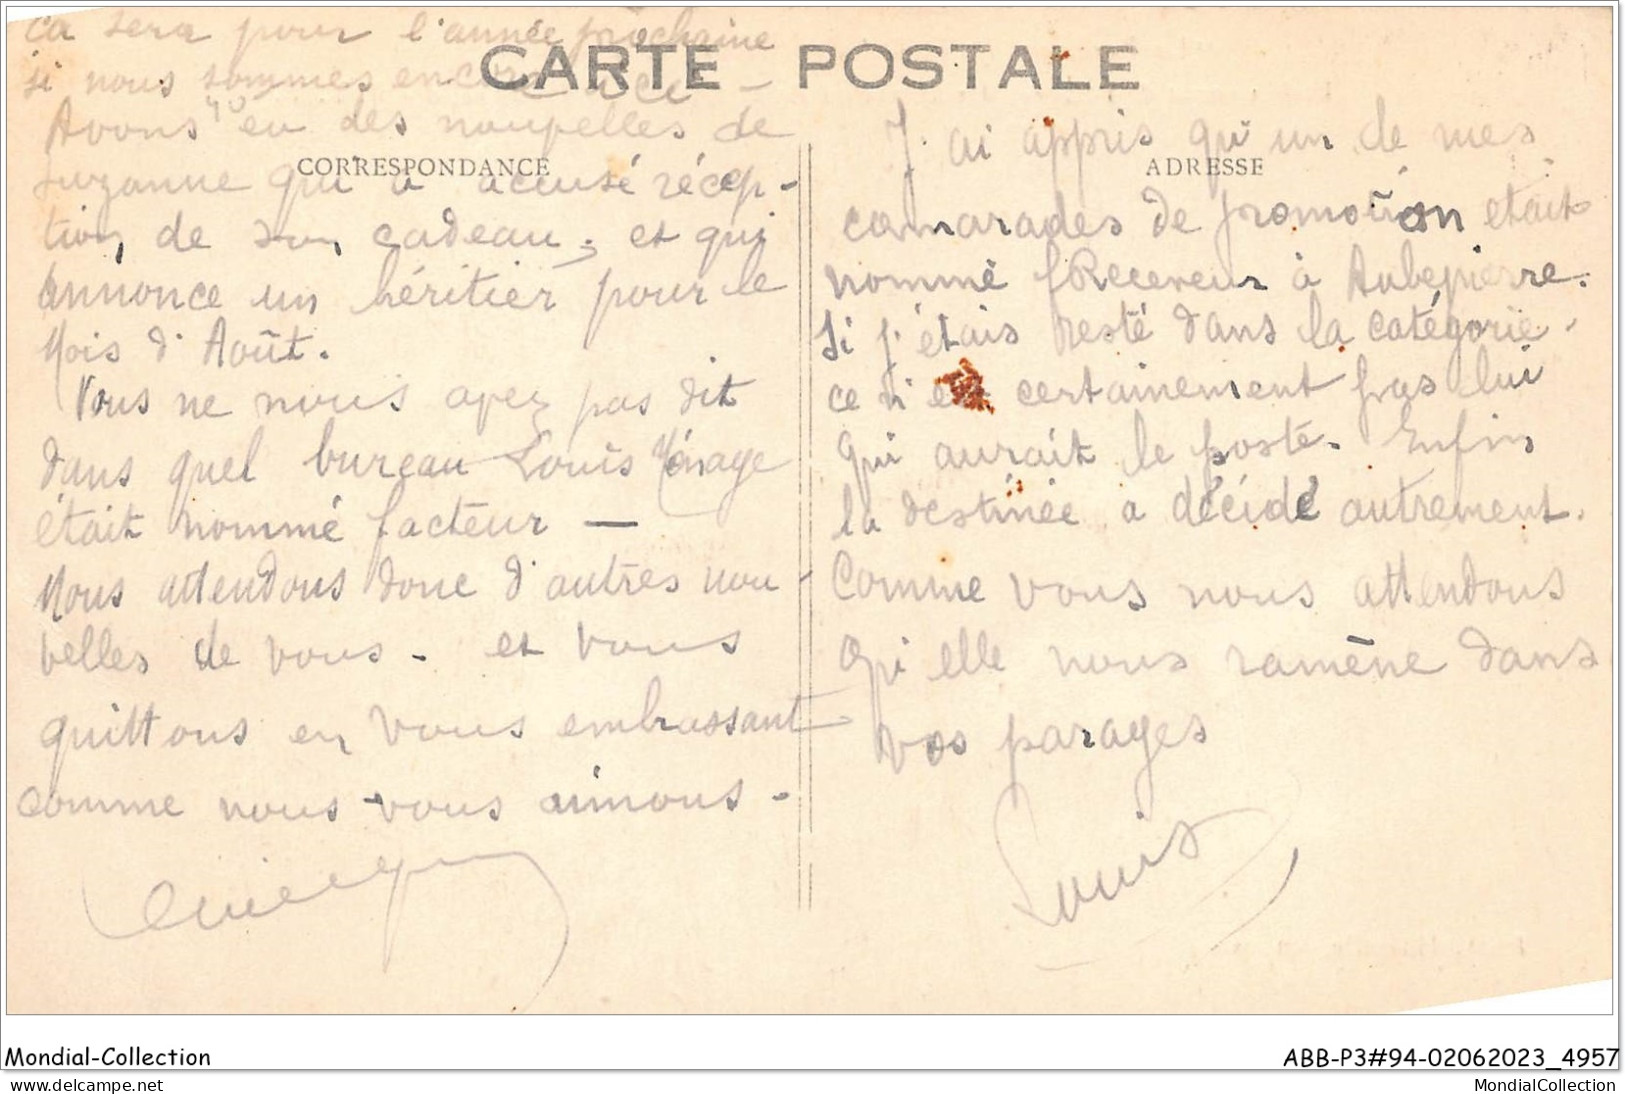 ça sera pour l'année prochaine
si nous sommes encore ici -
CARTE POSTALE
Avons eu des nouvelles de
CORRESPONDANCE
Suzanne qui a accusé récep-
tion de son cadeau, et qui
annonce un héritier pour le
Mois d'Août.
Vous ne nous avez pas dit
dans quel bureau Louis Ménage
était nommé facteur —
Nous attendons donc d'autres nou-
velles de vous - et vous
quittons en vous embrassant
comme nous vous aimons -
J'ai appris qu'un de mes
ADRESSE
camarades de promotion était
nommé Receveur à Aubepierre.
Si j'étais resté dans la catégorie,
ce n'est certainement pas lui
qui aurait le poste. Enfin
la destinée a décidé autrement.
Comme vous nous attendons
qu'elle nous ramène dans
vos parages
Louis
Mondial-Collection
ABB-P3#94-02062023_4957
www.delcampe.net
MondialCollection